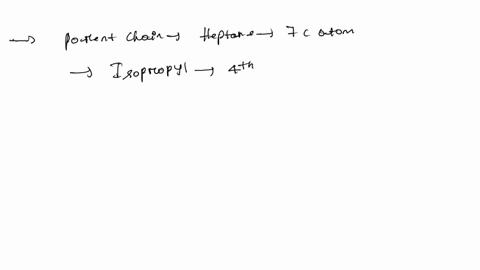 → Parent chain → Heptane → 7 C atom
→ Isopropyl → 4th